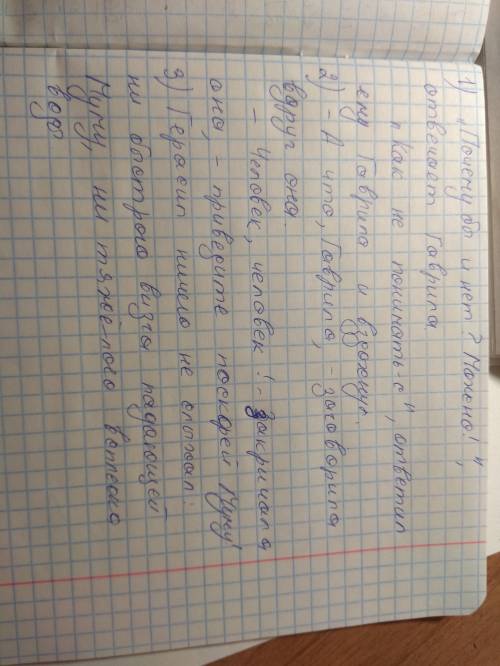 1) „Почему бы и нет? Можно!",
отвечает Гаврила
„Как не понимать-с", ответил
ему Гаврила и вздохнул.
2) - А что, Гаврило, - заговорила
вдруг она.
- Человек, человек! - закричала
она, - приведите поскорей Муму!
3) Герасим ничего не слыхал:
ни быстрого визга падающей
Муму, ни тяжёлого всплеска
воды